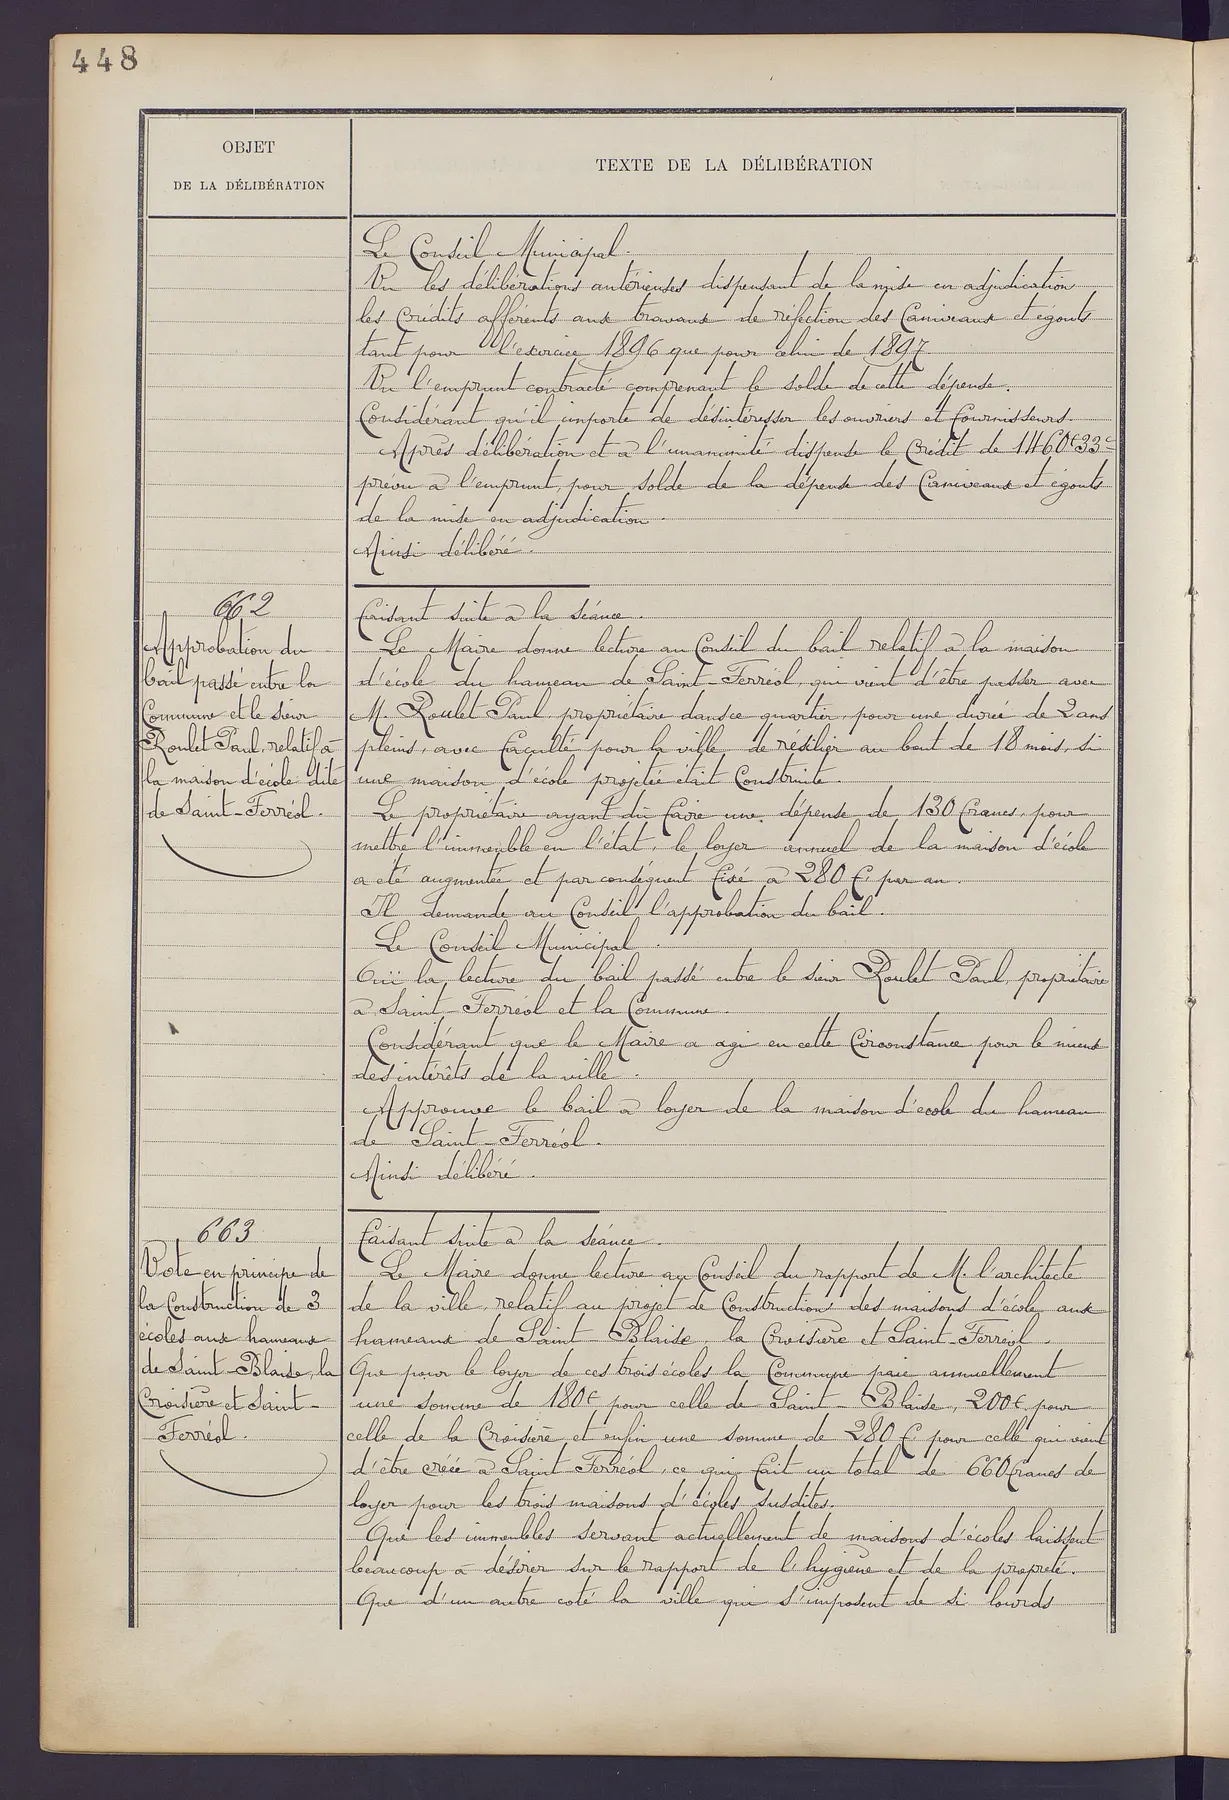 448
OBJET
DE LA DÉLIBÉRATION
TEXTE DE LA DÉLIBÉRATION
Le Conseil Municipal.
Vu les délibérations antérieures dispensant de la mise en adjudication
les Crédits afférents aux travaux de réfection des Caniveaux et égouts
tant pour l'exercice 1896 que pour celui de 1897.
Vu l'emprunt contracté comprenant le solde de cette dépense.
Considérant qu'il importe de désintéresser les ouvriers et fournisseurs.
Après délibération et à l'unanimité dispense le Crédit de 1460f33c
prévu à l'emprunt, pour solde de la dépense des Caniveaux et égouts
de la mise en adjudication.
Ainsi délibéré.
662
Approbation du
bail passé entre la
Commune et le sieur
Roulet Paul, relatif à
la maison d'école dite
de Saint-Ferréol.
Faisant suite à la séance.
Le Maire donne lecture au Conseil du bail relatif à la maison
d'école du hameau de Saint-Ferréol, qui vient d'être passer avec
M. Roulet Paul propriétaire dans ce quartier, pour une durée de 2 ans
pleins, avec faculté pour la ville de résilier au bout de 18 mois, si
une maison d'école projetée était Construite.
Le propriétaire ayant dû faire une dépense de 130 francs, pour
mettre l'immeuble en l'état, le loyer annuel de la maison d'école
a été augmentée et par conséquent fixé à 280 f. par an.
Il demande au Conseil l'approbation du bail.
Le Conseil Municipal.
Ouï la lecture du bail passé entre le sieur Roulet Paul, propriétaire
à Saint-Ferréol et la Commune.
Considérant que le Maire a agi en cette Circonstance pour le mieux
des intérêts de la ville.
Approuve le bail à loyer de la maison d'école du hameau
de Saint-Ferréol.
Ainsi délibéré.
663
Vote en principe de
la Construction de 3
écoles aux hameaux
de Saint-Blaise, la
Croisière et Saint-
Ferréol.
Faisant suite à la séance.
Le Maire donne lecture au Conseil du rapport de M. l'architecte
de la ville, relatif au projet de Construction des maisons d'école aux
hameaux de Saint-Blaise, la Croisière et Saint-Ferréol.
Que pour le loyer de ces trois écoles la Commune paie annuellement
une somme de 180f pour celle de Saint-Blaise, 200f pour
celle de la Croisière et enfin une somme de 280 f. pour celle qui vient
d'être créée à Saint-Ferréol, ce qui fait un total de 660 francs de
loyer pour les trois maisons d'écoles susdites.
Que les immeubles servant actuellement de maisons d'écoles laissent
beaucoup à désirer sur le rapport de l'hygiène et de la propreté.
Que d'un autre coté la ville qui s'imposent de si lourds